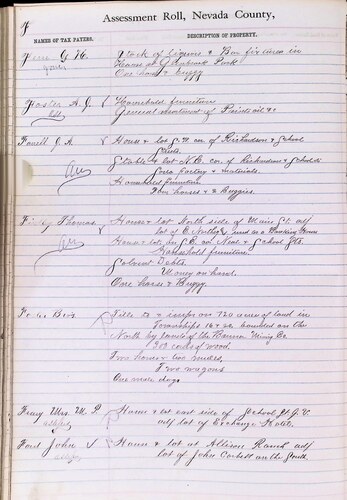 F
Assessment Roll, Nevada County,
NAMES OF TAX PAYERS.
DESCRIPTION OF PROPERTY.
Stock of Liquors & Bar fixtures in
Tavern at Glenbrook Park
One horse & buggy
Foster A. J. Household furniture
General assortment of
Farrell J. A. House & lot S.W. cor. of Richardson & School
Streets.
Stable & lot N.E. cor. of Richardson & School St
Soda factory & materials.
Household furniture
Four horses & 3 Buggies.
Thomas House & lot North side of Main St. adj
lot of C. used as a Boarding House
House & lot, in S.E. cor Neal & School Sts.
Household furniture.
Solvent Debts.
Money on hand.
One horse & Buggy.
Bros Title to & imps on 120 acres of land in
Townships 16 & bounded on the
North by lands of the Banner Mining Co
300 cords of wood.
Two horses & two mules,
Two wagons
One male dog.
Mrs. M. P. House & lot east side of School St. G.V.
adj lot of Exchange Hotel.
Ford John House & lot at Allison Ranch adj
lot of John Corbett on the South.